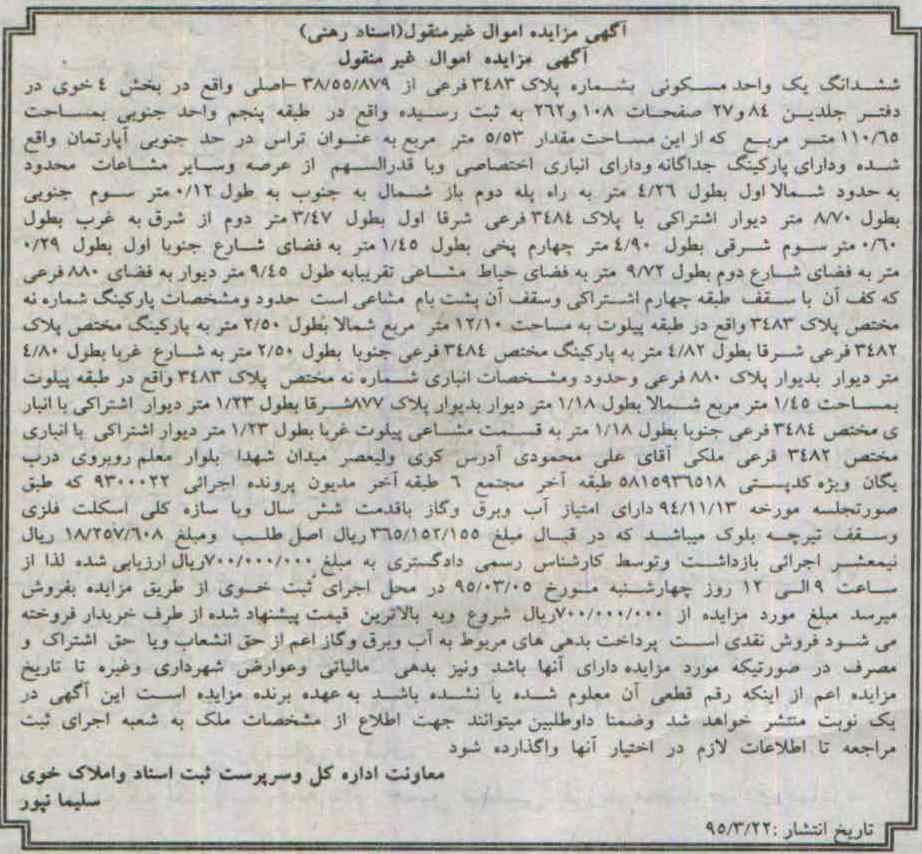 آگهی مزایده اموال غیرمنقول(اسناد رهنی)
آگهی مزایده اموال غیر منقول
ششدانگ یک واحد مسکونی بشماره پلاک ۳۴۸۳ فرعی از ۳۸/۵۵/۸۷۹ -اصلی واقع در بخش ٤ خوی در
دفتر جلدین ۸٤ و۲۷ صفحات ۱۰۸ و۲۶۲ به ثبت رسیده واقع در طبقه پنجم واحد جنوبی بمساحت
۱۱۰/۶۵ متر مربع که از این مساحت مقدار ۵/۵۳ متر مربع به عنوان تراس در حد جنوبی آپارتمان واقع
شده ودارای پارکینگ جداگانه ودارای انباری اختصاصی وبا قدرالسهم از عرصه وسایر مشاعات محدود
به حدود شمالا اول بطول ٤/۲۶ متر به راه پله دوم باز شمال به جنوب به طول ۰/۱۲ متر سوم جنوبی
بطول ۸/۷۰ متر دیوار اشتراکی با پلاک ۳٤۸٤ فرعی شرقا اول بطول ۳/٤۷ متر دوم از شرق به غرب بطول
۰/۶۰ متر سوم شرقی بطول ٤/۹۰ متر چهارم پخی بطول ۱/٤۵ متر به فضای شارع جنوبا اول بطول ۰/۲۹
متر به فضای شارع دوم بطول ۹/۷۲ متر به فضای حیاط مشاعی تقریبابه طول ۹/٤۵ متر دیوار به فضای ۸۸۰ فرعی
که کف آن با سقف طبقه چهارم اشتراکی وسقف آن پشت بام مشاعی است حدود ومشخصات پارکینگ شماره نه
مختص پلاک ۳٤۸۳ واقع در طبقه پیلوت به مساحت ۱۲/۱۰ متر مربع شمالا بطول ۲/۵۰ متر به پارکینگ مختص پلاک
۳٤۸۲ فرعی شرقا بطول ٤/۸۲ متر به پارکینگ مختص ۳٤۸٤ فرعی جنوبا بطول ۲/۵۰ متر به شارع غربا بطول ٤/۸۰
متر دیوار بدیوار پلاک ۸۸۰ فرعی وحدود ومشخصات انباری شماره نه مختص پلاک ۳٤۸۳ واقع در طبقه پیلوت
بمساحت ۱/٤۵ متر مربع شمالا بطول ۱/۱۸ متر دیوار بدیوار پلاک ۸۷۷شرقا بطول ۱/۲۳ متر دیوار اشتراکی با انبار
ی مختص ۳٤۸٤ فرعی جنوبا بطول ۱/۱۸ متر به قسمت مشاعی پیلوت غربا بطول ۱/۲۳ متر دیوار اشتراکی با انباری
مختص ۳٤۸۲ فرعی ملکی آقای علی محمودی آدرس کوی ولیعصر میدان شهدا بلوار معلم روبروی درب
یگان ویژه کدپستی ۵۸۱۵۹۳۶۵۱۸ طبقه آخر مجتمع ۶ طبقه آخر مدیون پرونده اجرائی ۹۳۰۰۰۲۲ که طبق
صورتجلسه مورخه ۹٤/۱۱/۱۳ دارای امتیاز آب وبرق وگاز باقدمت شش سال وبا سازه کلی اسکلت فلزی
وسقف تیرچه بلوک میباشد که در قبال مبلغ ۳۶۵/۱۵۲/۱۵۵ ریال اصل طلب ومبلغ ۱۸/۲۵۷/۶۰۸ ریال
نیمعشر اجرائی بازداشت وتوسط کارشناس رسمی دادگستری به مبلغ ۷۰۰/۰۰۰/۰۰۰ریال ارزیابی شده لذا از
ساعت ۹ الی ۱۲ روز چهارشنبه مورخ ۹۵/۰۳/۰۵ در محل اجرای ثبت خوی از طریق مزایده بفروش
میرسد مبلغ مورد مزایده از ۷۰۰/۰۰۰/۰۰۰ریال شروع وبه بالاترین قیمت پیشنهاد شده از طرف خریدار فروخته
می شود فروش نقدی است پرداخت بدهی های مربوط به آب وبرق وگاز اعم از حق انشعاب ویا حق اشتراک و
مصرف در صورتیکه مورد مزایده دارای آنها باشد ونیز بدهی مالیاتی وعوارض شهرداری وغیره تا تاریخ
مزایده اعم از اینکه رقم قطعی آن معلوم شده یا نشده باشد به عهده برنده مزایده است این آگهی در
یک نوبت منتشر خواهد شد وضمنا داوطلبین میتوانند جهت اطلاع از مشخصات ملک به شعبه اجرای ثبت
مراجعه تا اطلاعات لازم در اختیار آنها واگذارده شود
معاونت اداره کل وسرپرست ثبت اسناد واملاک خوی
سلیما نپور
تاریخ انتشار :۹۵/۳/۲۲